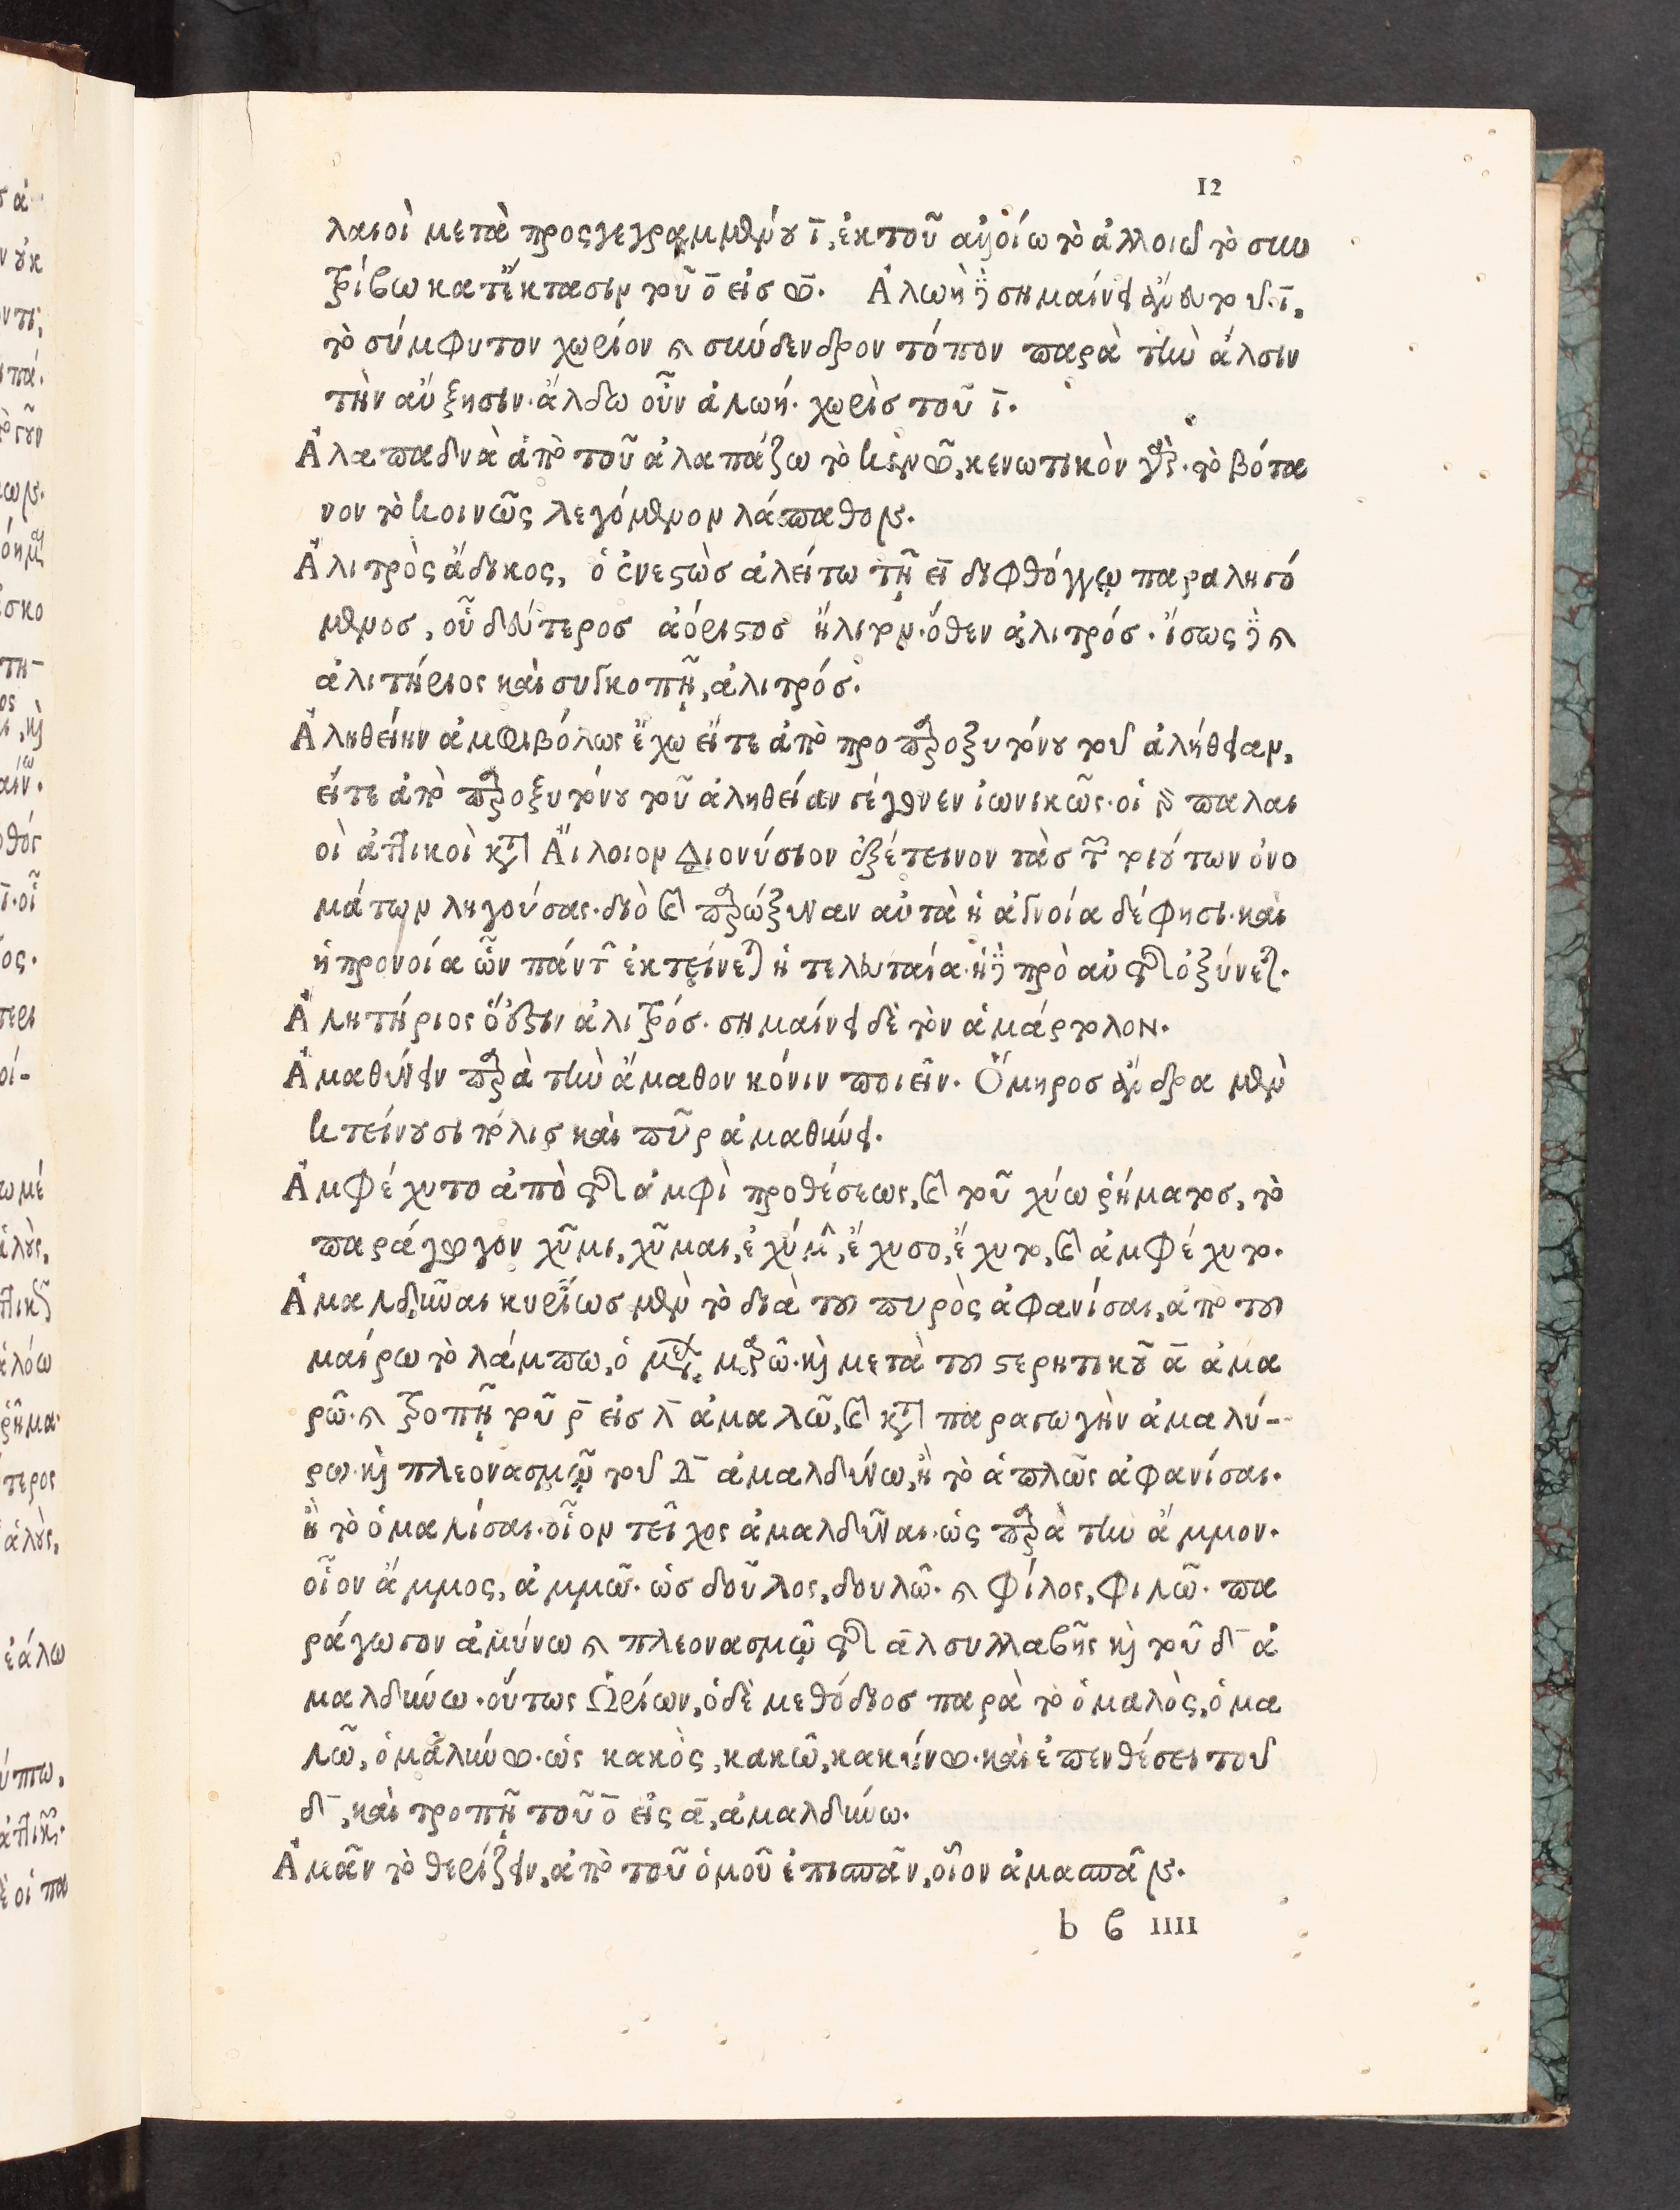 12
λαιοὶ μετὰ προσγεγραμμένου ῑ, ἐκ τοῦ ἀλοίω τὸ ἀλλοιῶ τὸ συν
τρίβω κατ' ἔκτασιν τοῦ ο̄ εἰς ω̄. Ἀλωὴ δὲ σημαίνει ἄνευ τοῦ ῑ,
τὸ σύμφυτον χωρίον καὶ σύνδενδρον τόπον παρὰ τὴν ἄλσιν
τὴν αὔξησιν. ἄλδω οὖν ἀλωή. χωρὶς τοῦ ῑ.
Ἀλαπαδνὰ ἀπὸ τοῦ ἀλαπάζω τὸ κενῶ, κενωτικὸν γὰρ. τὸ βότα
νον τὸ κοινῶς λεγόμενον λάπαθον.
Ἀλιτρὸς ἄδικος, ὁ ἐνεστὼς ἀλείτω τῇ ει διφθόγγῳ παραληγό
μενος, οὗ δεύτερος ἀόριστος ἤλιτον. ὅθεν ἀλιτρός. ἴσως δὲ καὶ
ἀλιτήριος καὶ συγκοπῇ, ἀλιτρός.
Ἀληθείην ἀμφιβόλως ἔχω εἴτε ἀπὸ προπαροξυτόνου τοῦ ἀλήθειαν,
εἴτε ἀπὸ παροξυτόνου τοῦ ἀληθείαν γέγονεν ἰωνικῶς. οἱ γὰρ παλαι
οὶ ἀττικοὶ κατὰ Αἴλιον Διονύσιον ἐξέτεινον τὰς τῶν τοιούτων ὀνο
μάτων ληγούσας. διὸ καὶ παρώξυναν αὐτὰ ἡ ἀγνοία δέ φησι. καὶ
ἡ προνοία ὧν πάντων ἐκτείνεται ἡ τελευταία. ἡ δὲ πρὸ αὐτῆς ὀξύνεται.
Ἀλητήριος ὅθεν ἀλιτρός. σημαίνει δὲ τὸν ἁμάρτολον.
Ἀμαθύνειν παρὰ τὴν ἄμαθον κόνιν ποιεῖν. Ὅμηρος ἄνδρα μὲν
κτείνουσι πόλιν καὶ πῦρ ἀμαθύνει.
Ἀμφέχυτο ἀπὸ τῆς ἀμφὶ προθέσεως, καὶ τοῦ χύω ῥήματος, τὸ
παράγωγον χῦμι, χῦμαι, ἐχύμην, ἔχυσο, ἔχυτο, καὶ ἀμφέχυτο.
Ἀμαλδῦναι κυρίως μὲν τὸ διὰ τοῦ πυρὸς ἀφανίσαι, ἀπὸ τοῦ
μαίρω τὸ λάμπω, ὁ μέλλων μαρῶ. καὶ μετὰ τοῦ στερητικοῦ ᾱ ἀμα
ρῶ. καὶ τροπῇ τοῦ ρ̄ εἰς λ̄ ἀμαλῶ, καὶ κατὰ παραγωγὴν ἀμαλύ-
ρω. καὶ πλεονασμῷ τοῦ Δ̄ ἀμαλδύνω, ἢ τὸ ἁπλῶς ἀφανίσαι.
ἢ τὸ ὁμαλίσαι. οἷον τεῖχος ἀμαλδῦναι. ὡς παρὰ τὴν ἄμμον.
οἷον ἄμμος, ἀμμῶ. ὡς δοῦλος, δουλῶ. καὶ φίλος, φιλῶ. πα
ράγωγον ἀμύνω καὶ πλεονασμῷ τῆς ᾱλ συλλαβῆς καὶ τοῦ δ̄ ἀ
μαλδύνω. οὕτως Ὠρίων, ὁ δὲ μεθόδιος παρὰ τὸ ὁμαλὸς, ὁμα
λῶ, ὁμαλύνω. ὡς κακὸς, κακῶ, κακύνω. καὶ ἐπενθέσει τοῦ
δ̄, καὶ τροπῇ τοῦ ο̄ εἰς ᾱ, ἀμαλδύνω.
Ἀμᾶν τὸ θερίζειν, ἀπὸ τοῦ ὁμοῦ ἐπισπᾶν, οἷον ἁμασπᾶν.
b β IIII